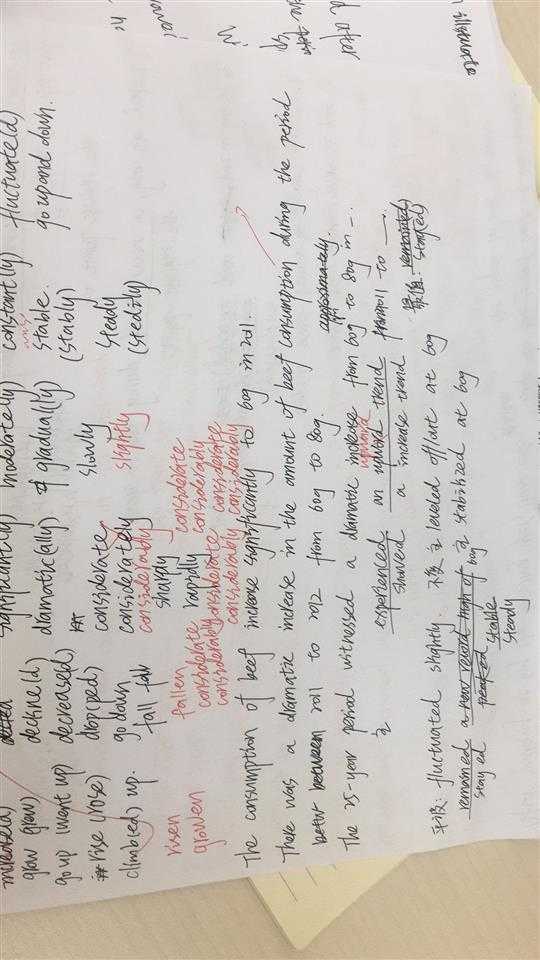 increase(d) significant(ly) moderate(ly) constant(ly) fluctuate(d)
grow (grew) decline(d) dramatic(ally) gradual(ly) stable go up and down.
go up (went up) decrease(d) considerate slowly (stably)
rise (rose) drop(ped) considerately slightly steady
climb(ed) up. go down considerably (stedily)
fall fell sharply
risen fallen rapidly considerate
grown considerate considerate considerably
considerably considerably considerate
considerably considerably considerably
The consumption of beef increase significantly to 60g in 2011.
There was a dramatic increase in the amount of beef consumption during the period
between 2011 to 2012 from 60g to 80g.
approximately
The 25-year period witnessed a dramatic increase from 60g to 80g in _.
主 experienced an upward trend
upward
showed a increase trend
to _.
最值: remained
star(ed)
平波: fluctuated slightly. 不波 主 leveled off at 60g
remained 60g 主 stabilized at 60g
stayed
stable
steady